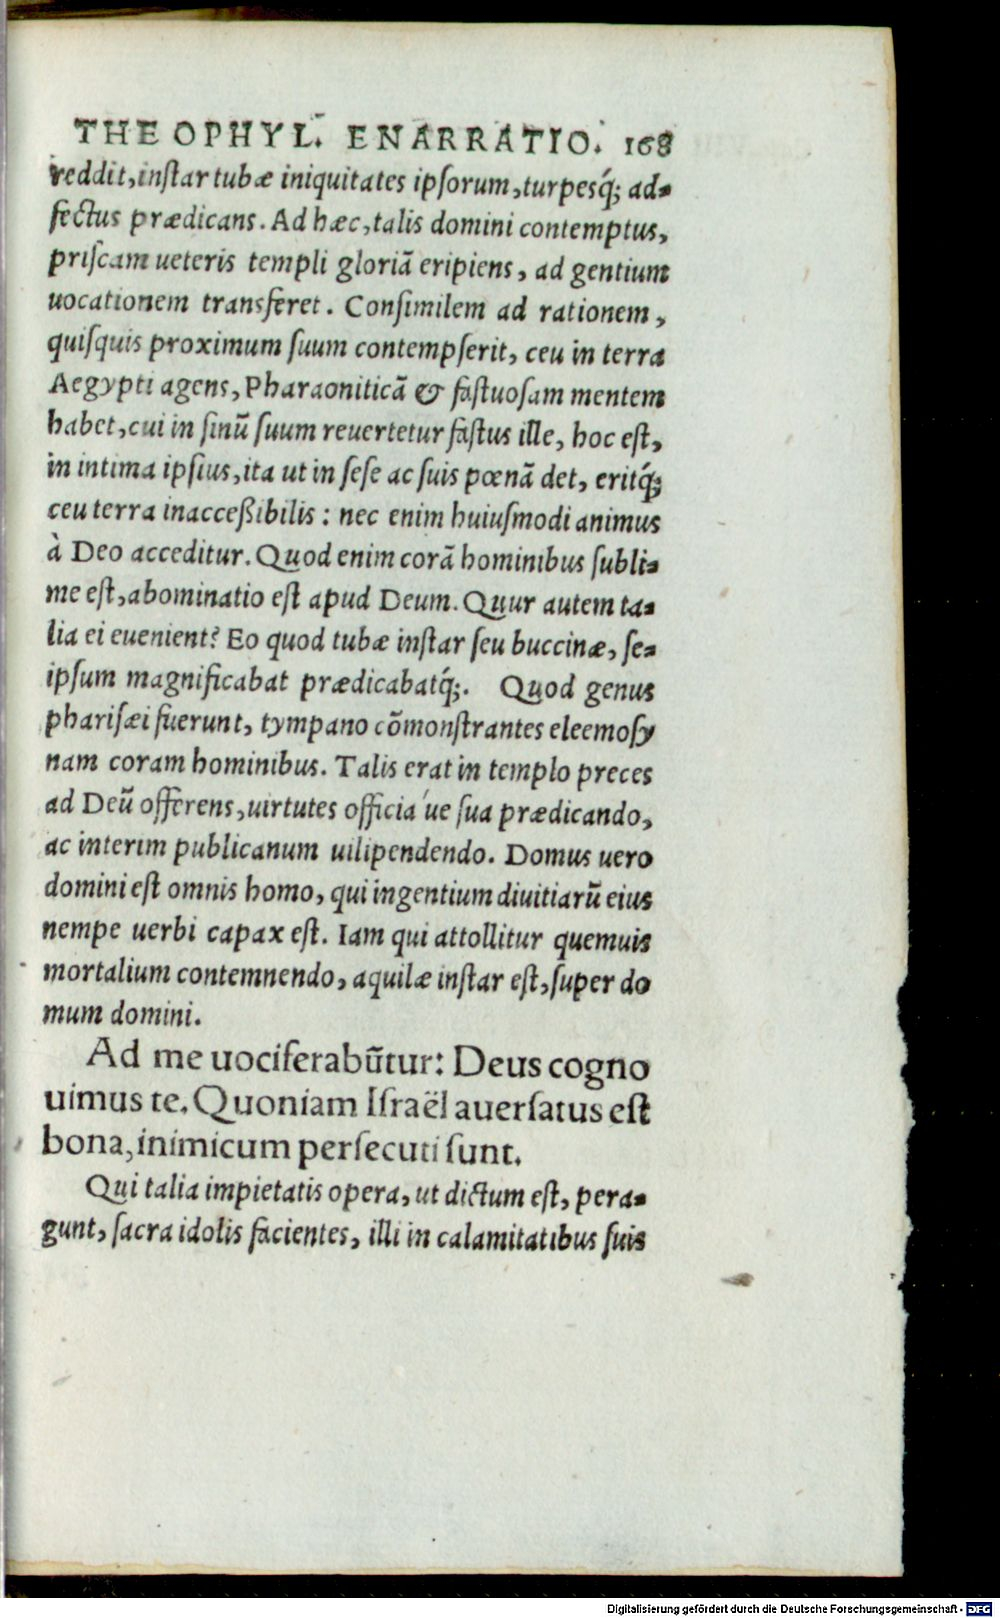 THEOPHYL. ENARRATIO. 168
reddit, inſtar tubæ iniquitates ipſorum, turpesq́; ad-
fectus prædicans. Ad hæc, talis domini contemptus,
priſcam ueteris templi gloriā eripiens, ad gentium
uocationem transferet. Conſimilem ad rationem,
quiſquis proximum ſuum contempſerit, ceu in terra
Aegypti agens, Pharaoniticā & faſtuoſam mentem
habet, cui in ſinū ſuum reuertetur faſtus ille, hoc eſt,
in intima ipſius, ita ut in ſeſe ac ſuis pœnā det, eritq́;
ceu terra inacceßibilis: nec enim huiuſmodi animus
à Deo acceditur. Quod enim corā hominibus ſubli-
me eſt, abominatio eſt apud Deum. Quur autem ta-
lia ei euenient? Eo quod tubæ inſtar ſeu buccinæ, ſe-
ipſum magnificabat prædicabatq́;. Quod genus
phariſæi fuerunt, tympano cōmonſtrantes eleemoſy
nam coram hominibus. Talis erat in templo preces
ad Deū offerens, uirtutes officia ue ſua prædicando,
ac interim publicanum uilipendendo. Domus uero
domini eſt omnis homo, qui ingentium diuitiarū eius
nempe uerbi capax eſt. Iam qui attollitur quemuis
mortalium contemnendo, aquilæ inſtar eſt, ſuper do
mum domini.
Ad me uociferabūtur: Deus cogno
uimus te. Quoniam Iſraël auerſatus eſt
bona, inimicum perſecuti ſunt.
Qui talia impietatis opera, ut dictum eſt, pera-
gunt, ſacra idolis facientes, illi in calamitatibus ſuis
Digitalisierung gefördert durch die Deutsche Forschungsgemeinschaft - DFG